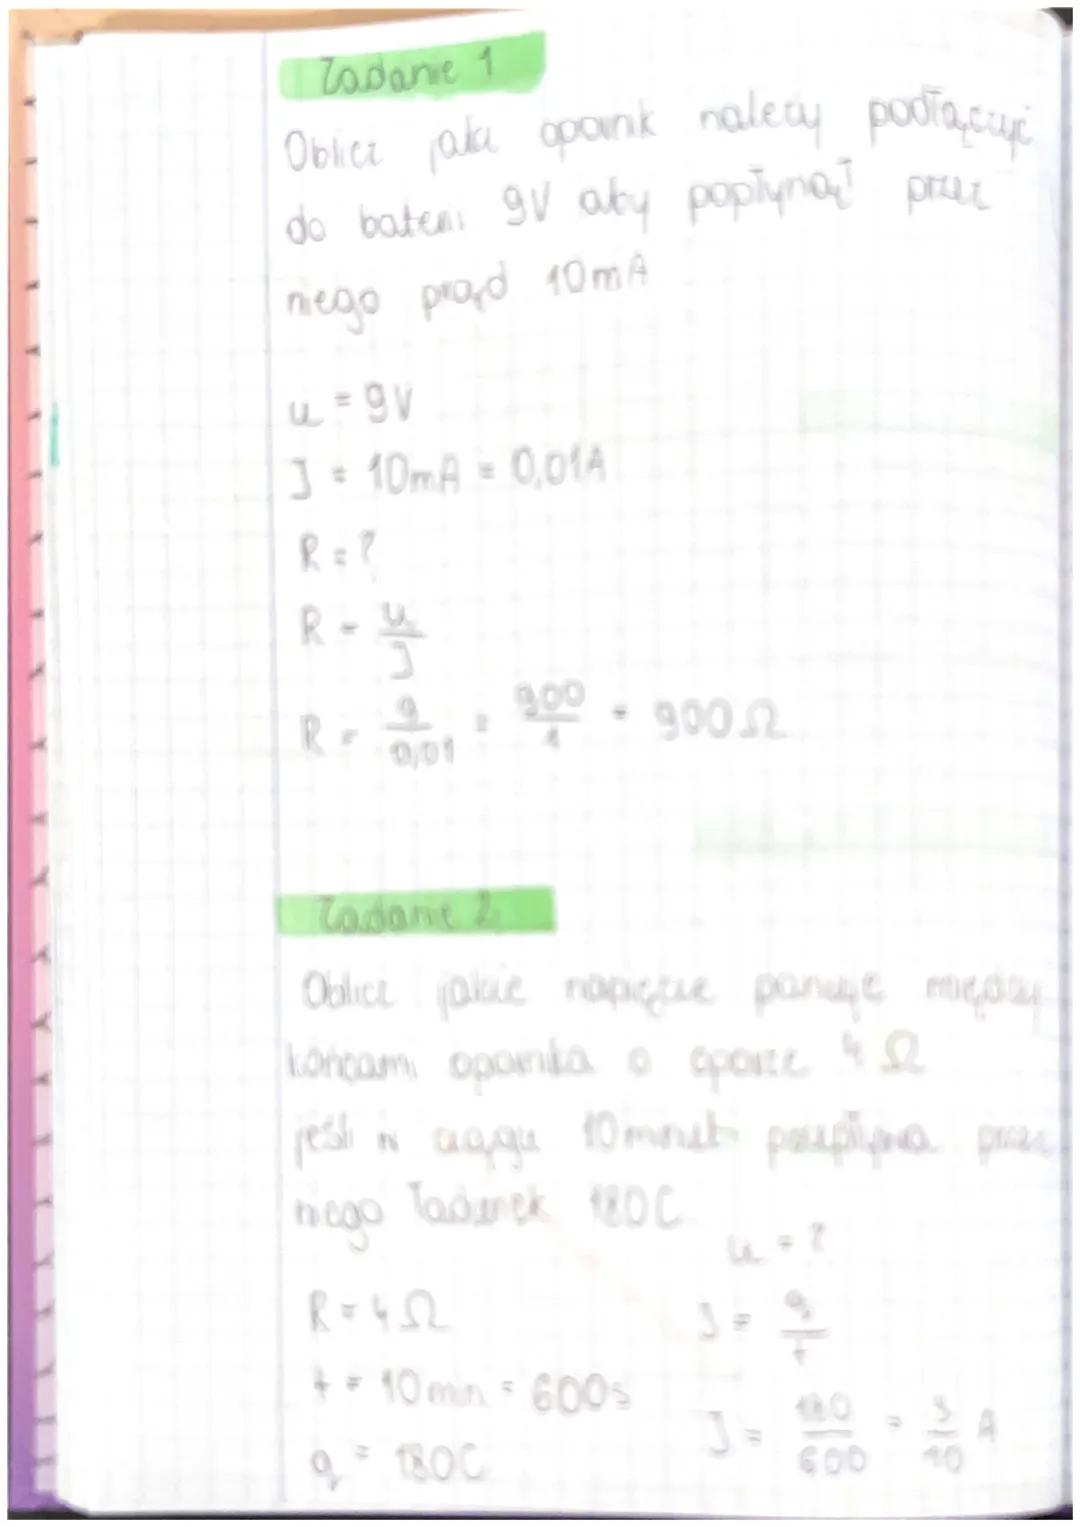 Zadanie 1
Oblicz jaki opornik należy podłączyć
do baterii 9V aby popłynął przez
niego prąd 10mA
u = 9V
J = 10mA = 0,01A
R = ?
R = u/J
R = 9/0,01 = 900/1 = 900Ω
Zadanie 2
Oblicz jakie napięcie panuje między
końcami opornika o oporze 4 Ω
jeśli w ciągu 10 minut przepływa przez
niego ładunek 180C
u = ?
R = 4Ω
J = q/t
t = 10 min = 600s
J = 180/600 = 3/10 A
q = 180C